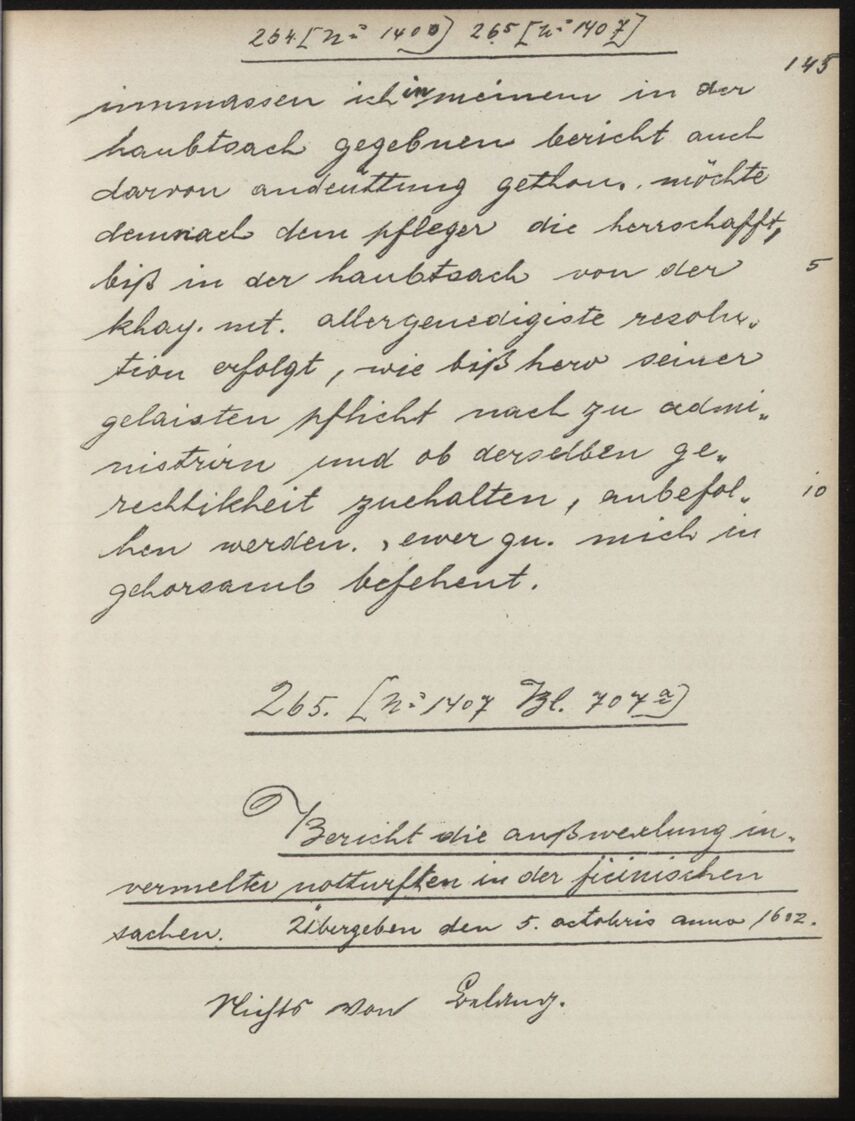 264. [No 1400] 265 [No 1407]
145
immmassen ich in meinem in der
haubtsach gegebnen bericht auch
darvon andeüttung gethon. möchte
demnach dem pfleger die herrschafft,
biß in der haubtsach von der
5
khay. mt. allergenedigiste resolu„
tion erfolgt, wie biß hero seiner
gelaisten pflicht nach zu admi„
nistrirn und ob derselben ge„
rechtikheit zuehalten, anbefol„
10
hen werden. , ewer gn. mich in
gehorsamb befehent.
265. [No 1407 Bl. 707a]
Bericht die außwexlung in„
vermelter notturften in der ficinischen
sachen. Übergeben den 5. octobris anno 1602.
Nichts von Belang.